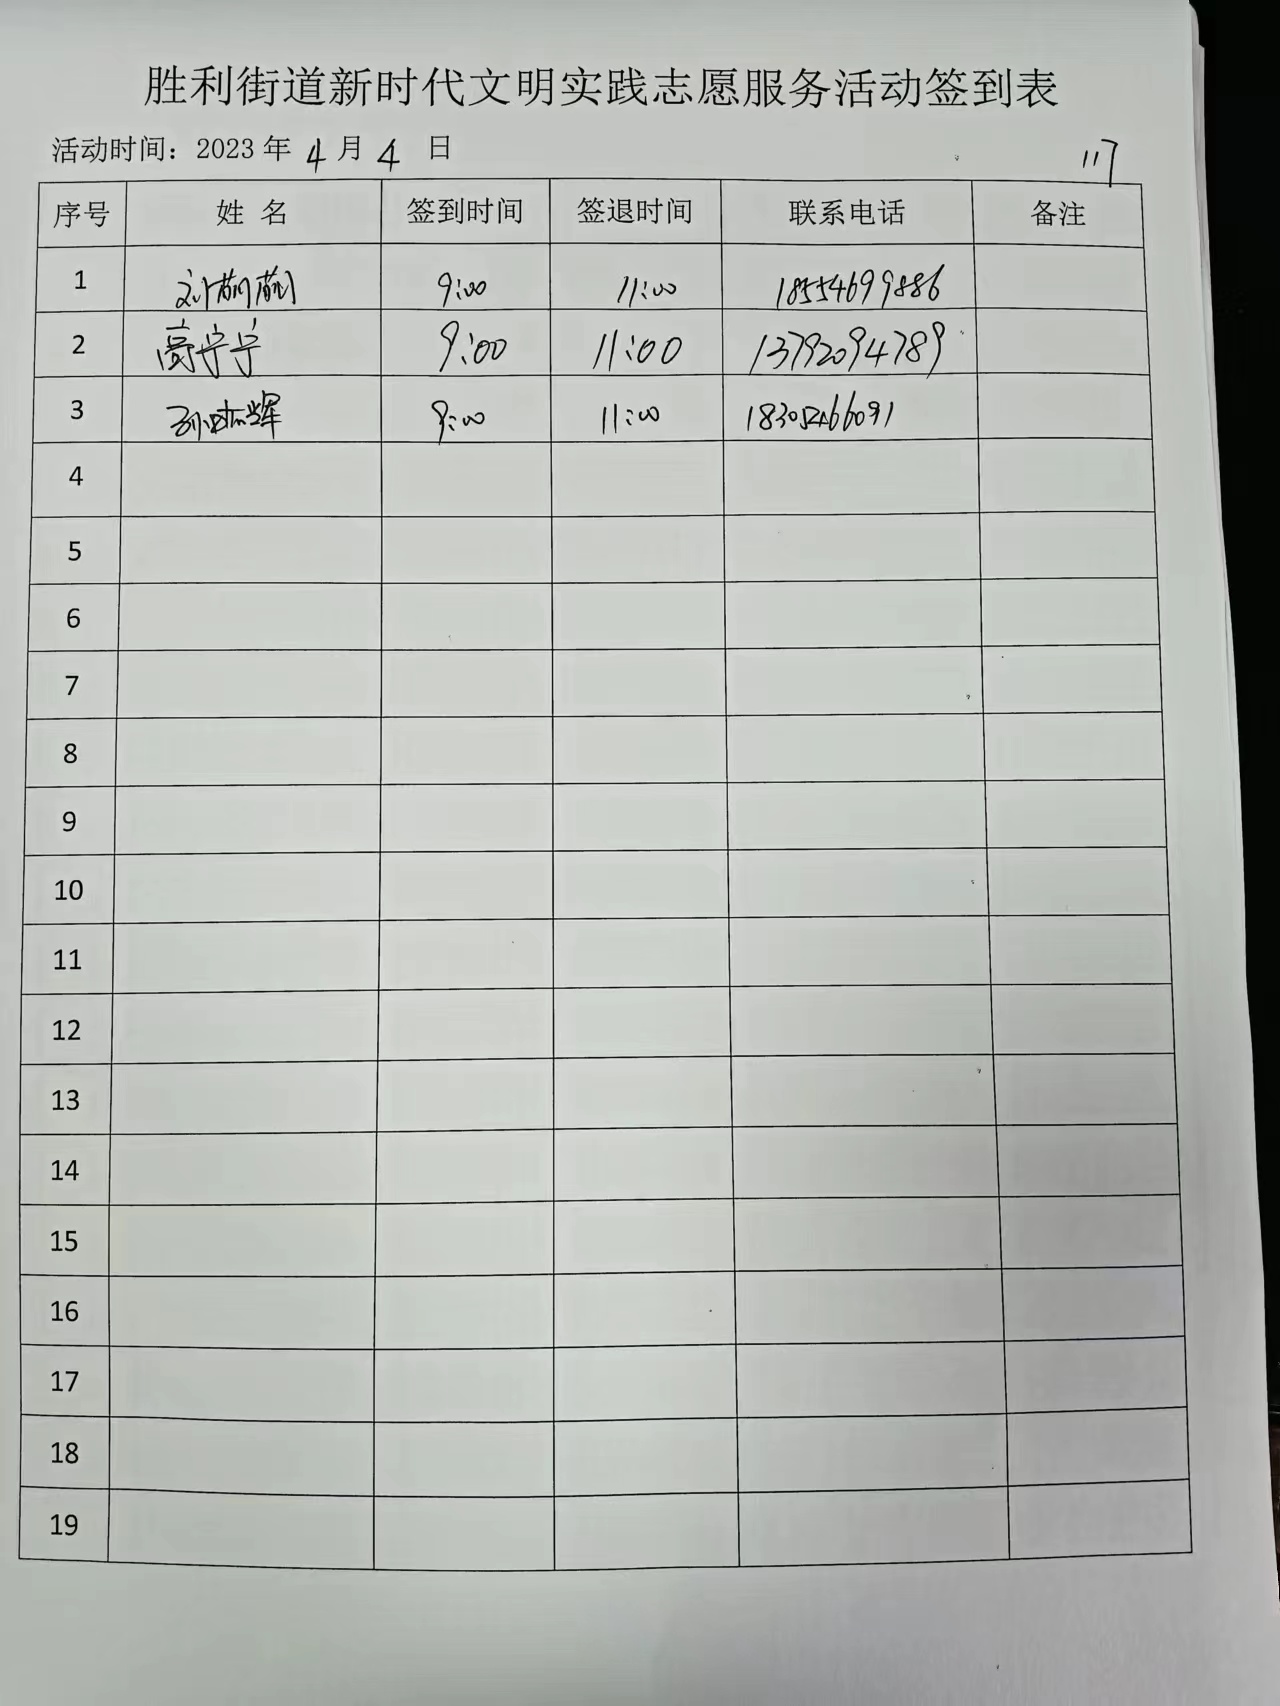 胜利街道新时代文明实践志愿服务活动签到表
活动时间：2023 年 4 月 4 日
117
序号 姓 名 签到时间 签退时间 联系电话 备注
1 刘萌萌 9:00 11:00 18554699886
2 高宁宁 9:00 11:00 13792094789
3 9:00 11:00 18305466091
4
5
6
7
8
9
10
11
12
13
14
15
16
17
18
19